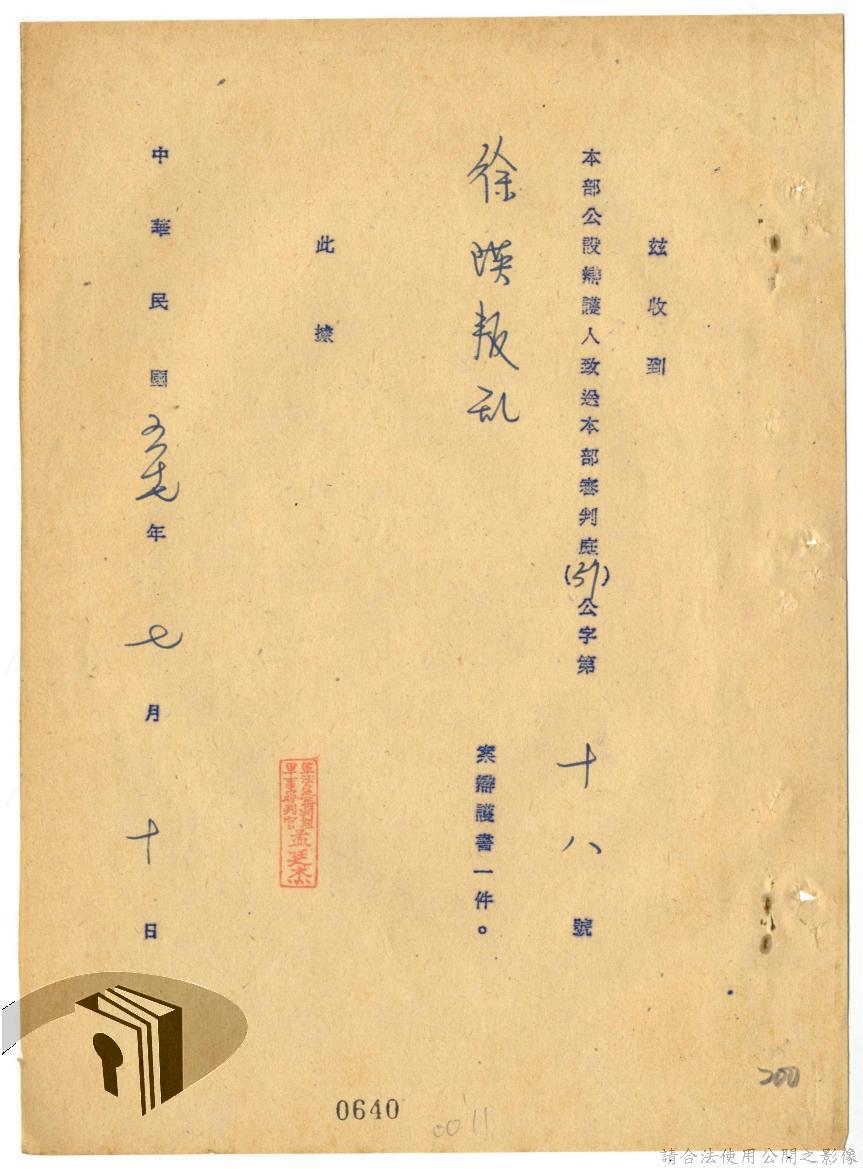 茲收到
本部公設辯護人致送本部審判庭(57)公字第十八號
徐瑛叛乱案辯護書一件。
此據
孟廷杰
中華民國五十七年七月十日
0640
0011
200
請合法使用公開之影像